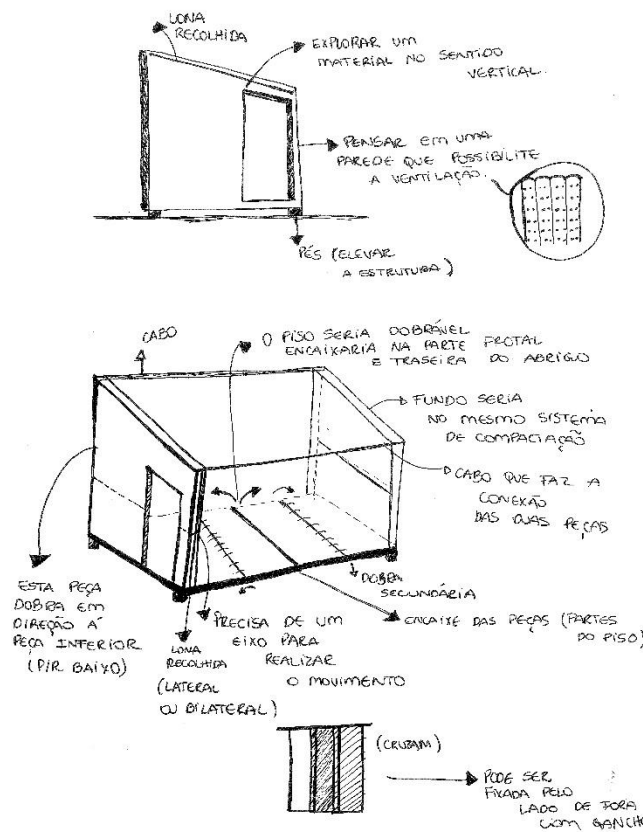 LONA
RECOLHIDA
EXPLORAR UM
MATERIAL NO SENTIDO
VERTICAL.
PENSAR EM UMA
PAREDE QUE POSSIBILITE
A VENTILAÇÃO.
PÉS (ELEVAR
A ESTRUTURA)
CABO
O PISO SERIA DOBRÁVEL
ENCAIXARIA NA PARTE FROTAL
E TRASEIRA DO ABRIGO
FUNDO SERIA
NO MESMO SISTEMA
DE COMPACTAÇÃO
CABO QUE FAZ A
CONEXÃO
DAS DUAS PEÇAS
DOBRA
SECUNDÁRIA
ENCAIXE DAS PEÇAS (PARTES
DO PISO)
ESTA PEÇA
DOBRA EM
DIREÇÃO Á
PEÇA INFERIOR
(P/R BAIXO)
LONA
RECOLHIDA
(LATERAL
OU BILATERAL)
PRECISA DE UM
EIXO PARA
REALIZAR
O MOVIMENTO
(CRUZAM)
PODE SER
FIXADA PELO
LADO DE FORA
COM GANCHO